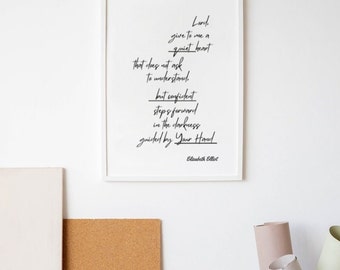 Lord,
give to me a
quiet heart
that does not ask
to understand,
but confident
steps forward
in the darkness
guided by Your Hand
Elisabeth Elliot